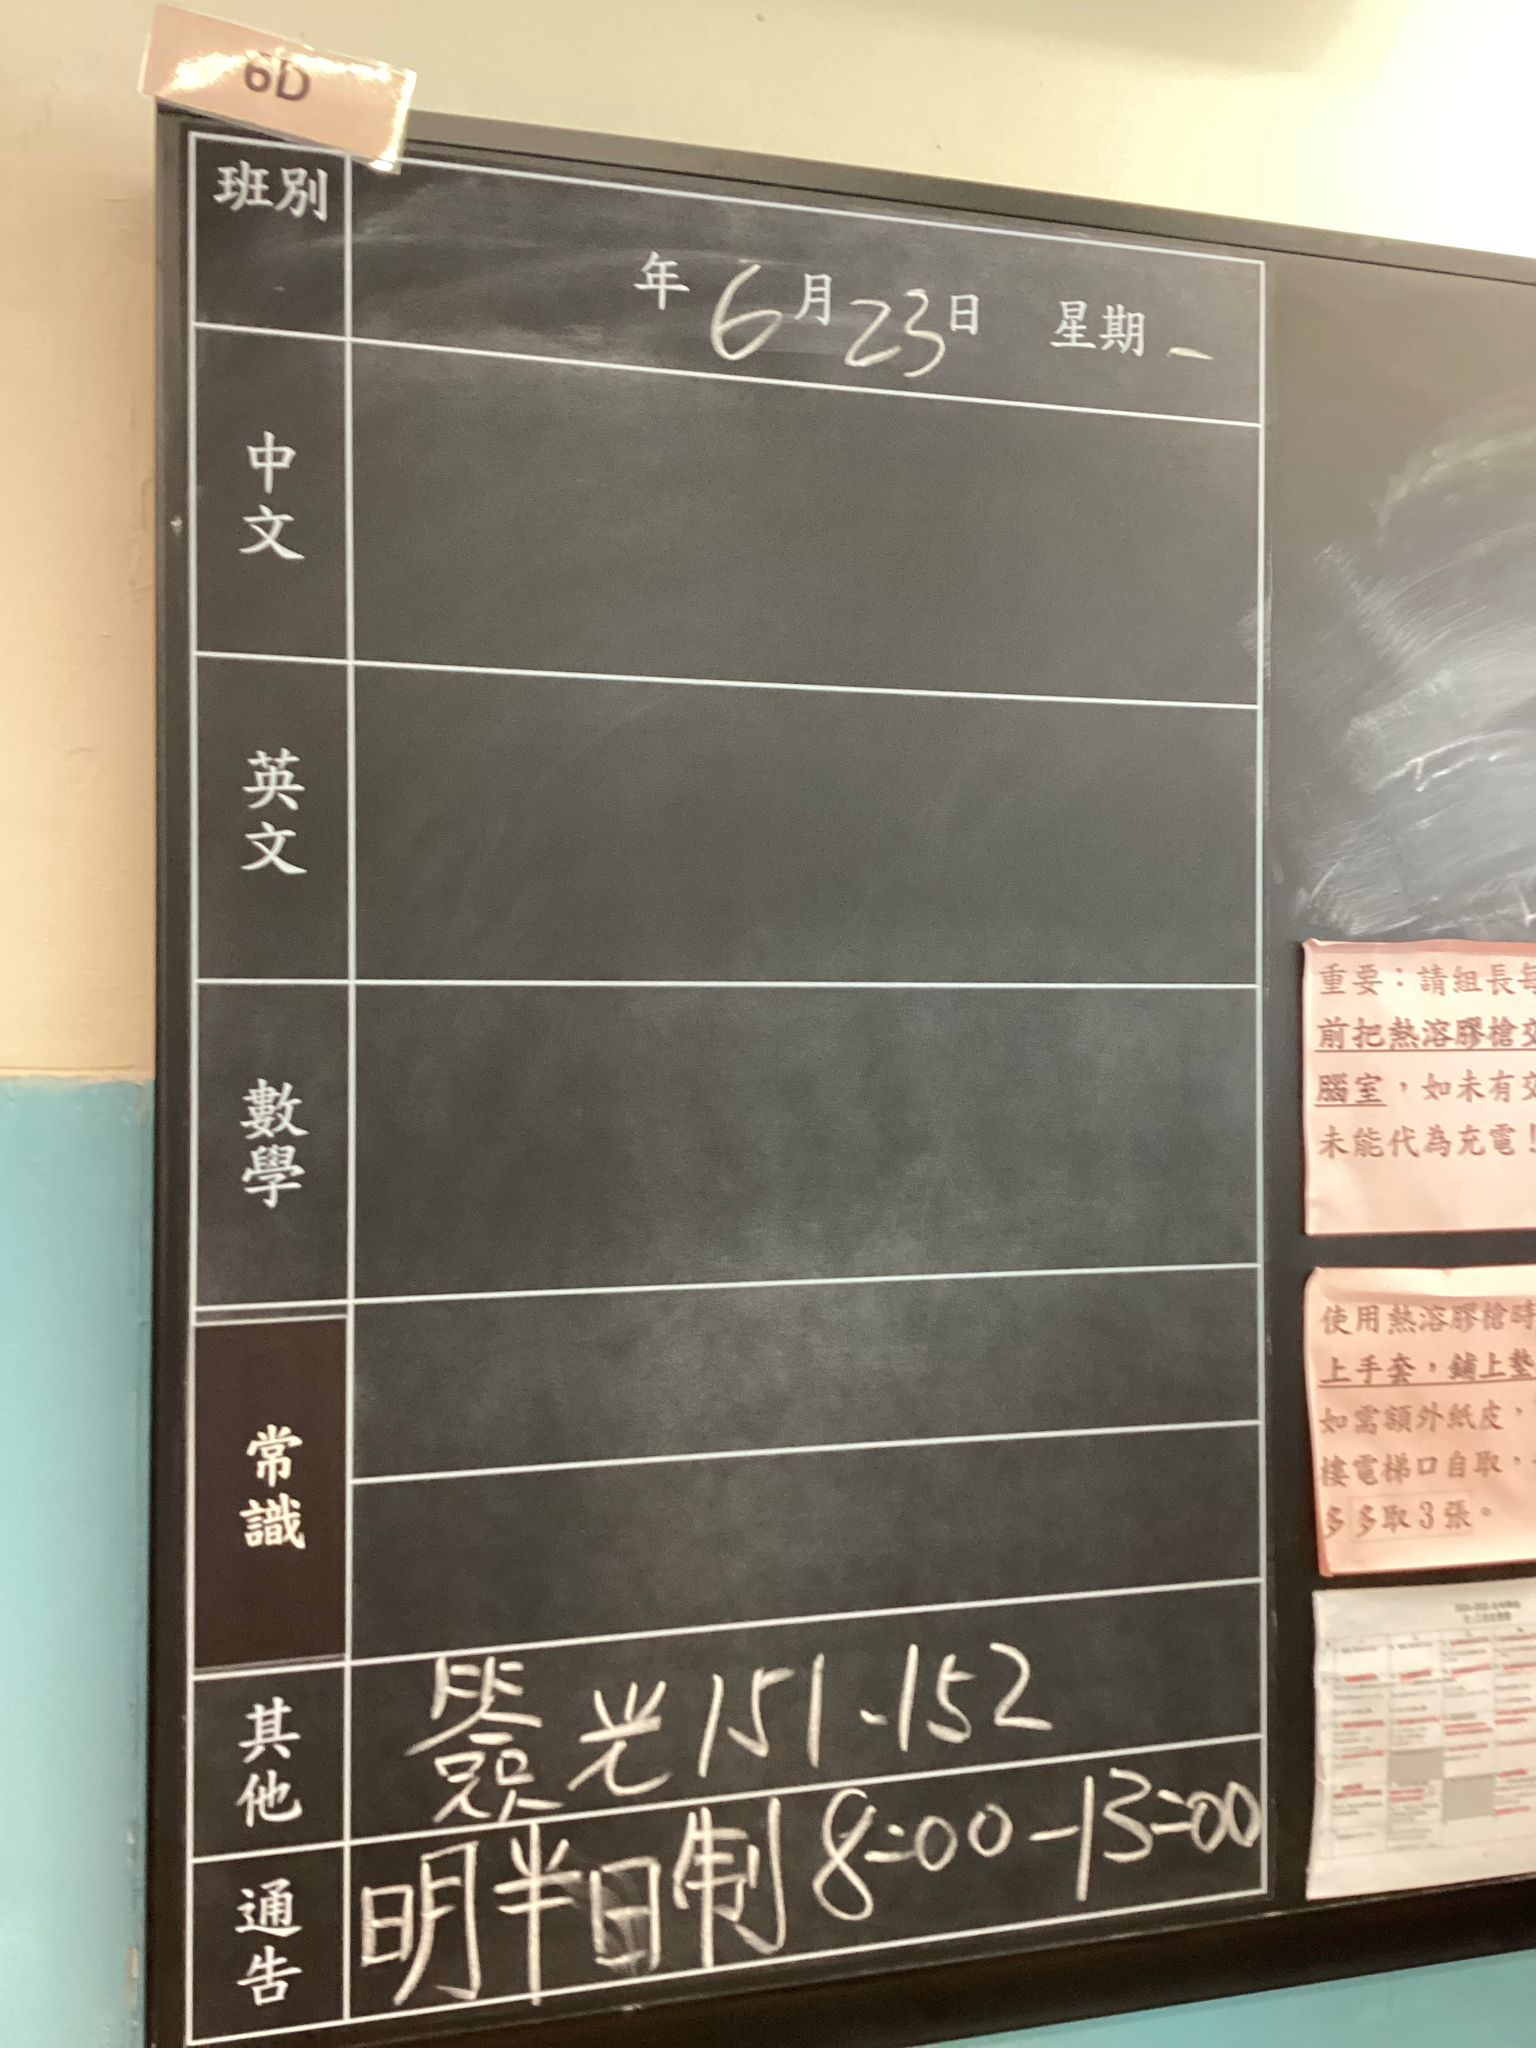 6D
班別
年6月23日 星期一
中文
英文
數學
常識
其他
光151、152
通告
明半日制8:00-13:00
重要：請組長每
前把熱溶膠槍交
腦室，如未有交
未能代為充電！
使用熱溶膠槍時
上手套，鋪上墊
如需額外紙皮，
樓電梯口自取，
多多取3張。